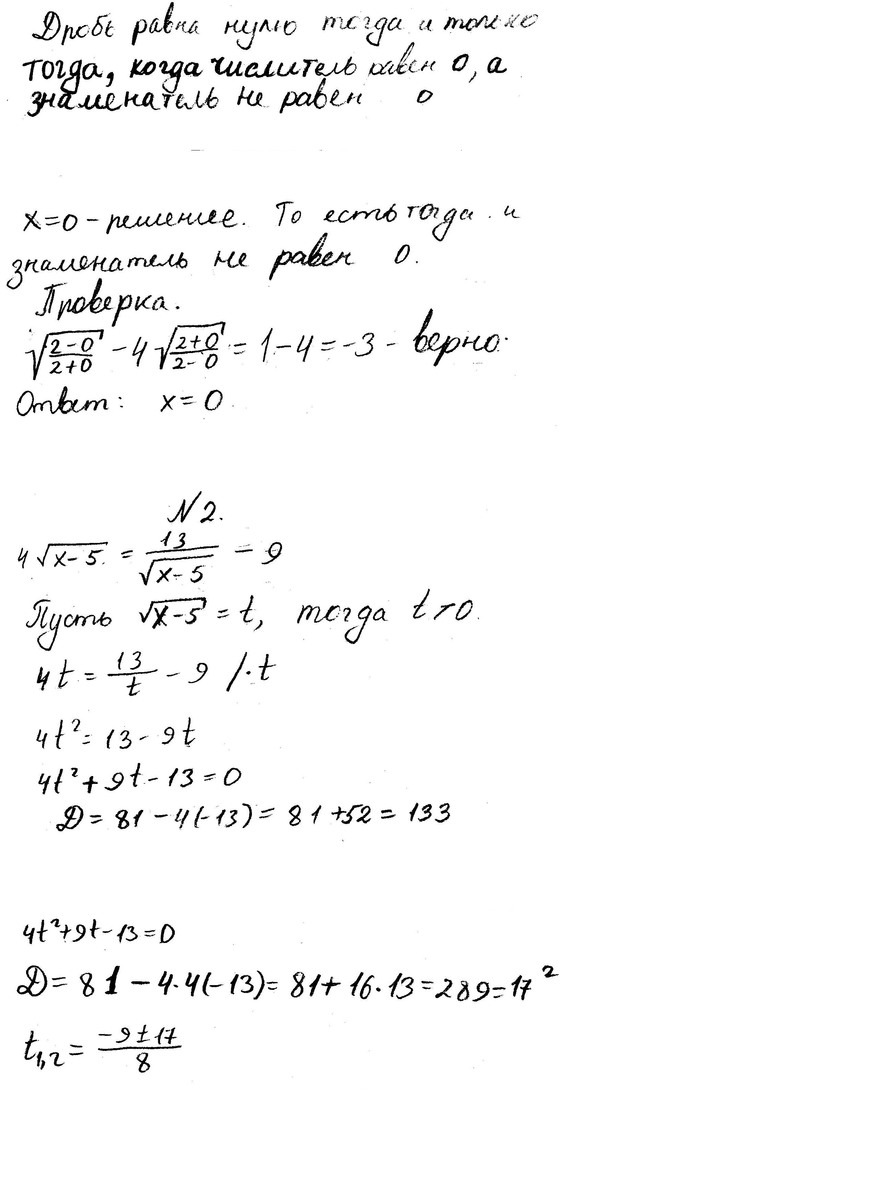 Дробь равна нулю тогда и только
тогда, когда числитель равен 0, а
знаменатель не равен 0
x=0 – решение. То есть тогда и
знаменатель не равен 0.
Проверка.
√((2-0)/(2+0)) - 4√((2+0)/(2-0)) = 1-4 = -3 - верно.
Ответ: x=0
N2.
4√(x-5) = 13/√(x-5) - 9
Пусть √(x-5) = t, тогда t>0.
4t = 13/t - 9 /·t
4t² = 13 - 9t
4t² + 9t - 13 = 0
D = 81 - 4(-13) = 81 + 52 = 133
4t²+9t-13=0
D = 81 - 4·4(-13) = 81 + 16·13 = 289 = 17²
t₁,₂ = (-9±17)/8